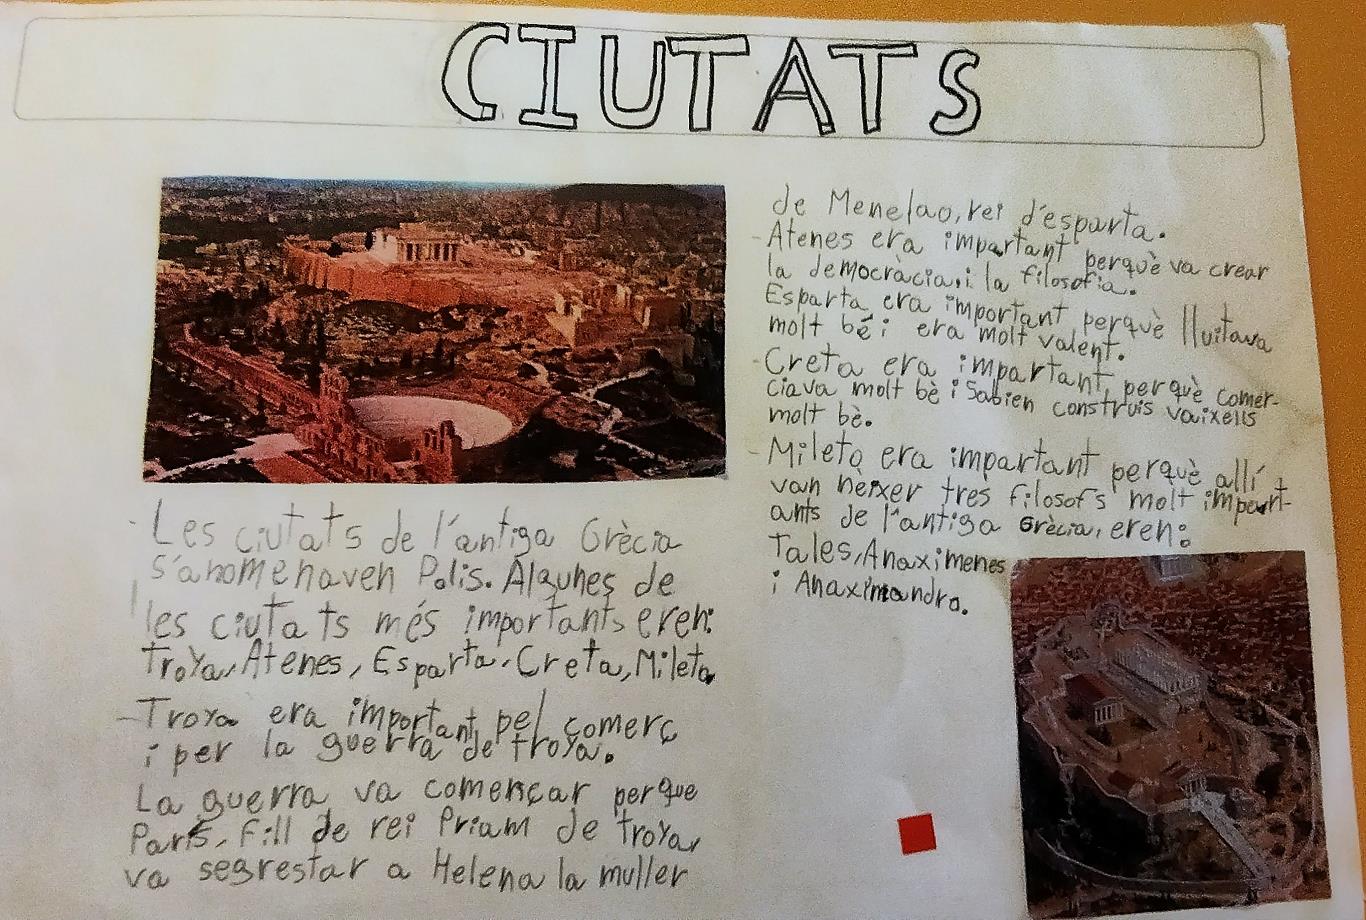 CIUTATS
- Les ciutats de l'antiga Grècia
s'anomenaven Polis. Algunes de
les ciutats més importants eren:
Troya, Atenes, Esparta, Creta, Mileto
- Troya era important pel comerç
i per la guerra de troya.
La guerra va començar perque
París, fill de rei Priam de troya,
va segrestar a Helena la muller
de Menelao, rei d'esparta.
- Atenes era impartant perquè va crear
la democràcia, i la filosofia.
Esparta era important perquè lluitava
molt bé i era molt valent.
- Creta era impartant, perquè comer-
ciava molt bè i Sabien construis vaixells
molt bè.
- Mileto era impartant perquè allí
van neixer tres filosofs molt import-
ants de l'antiga Grècia, eren:
Tales, Anaximenes
i Anaximandro.